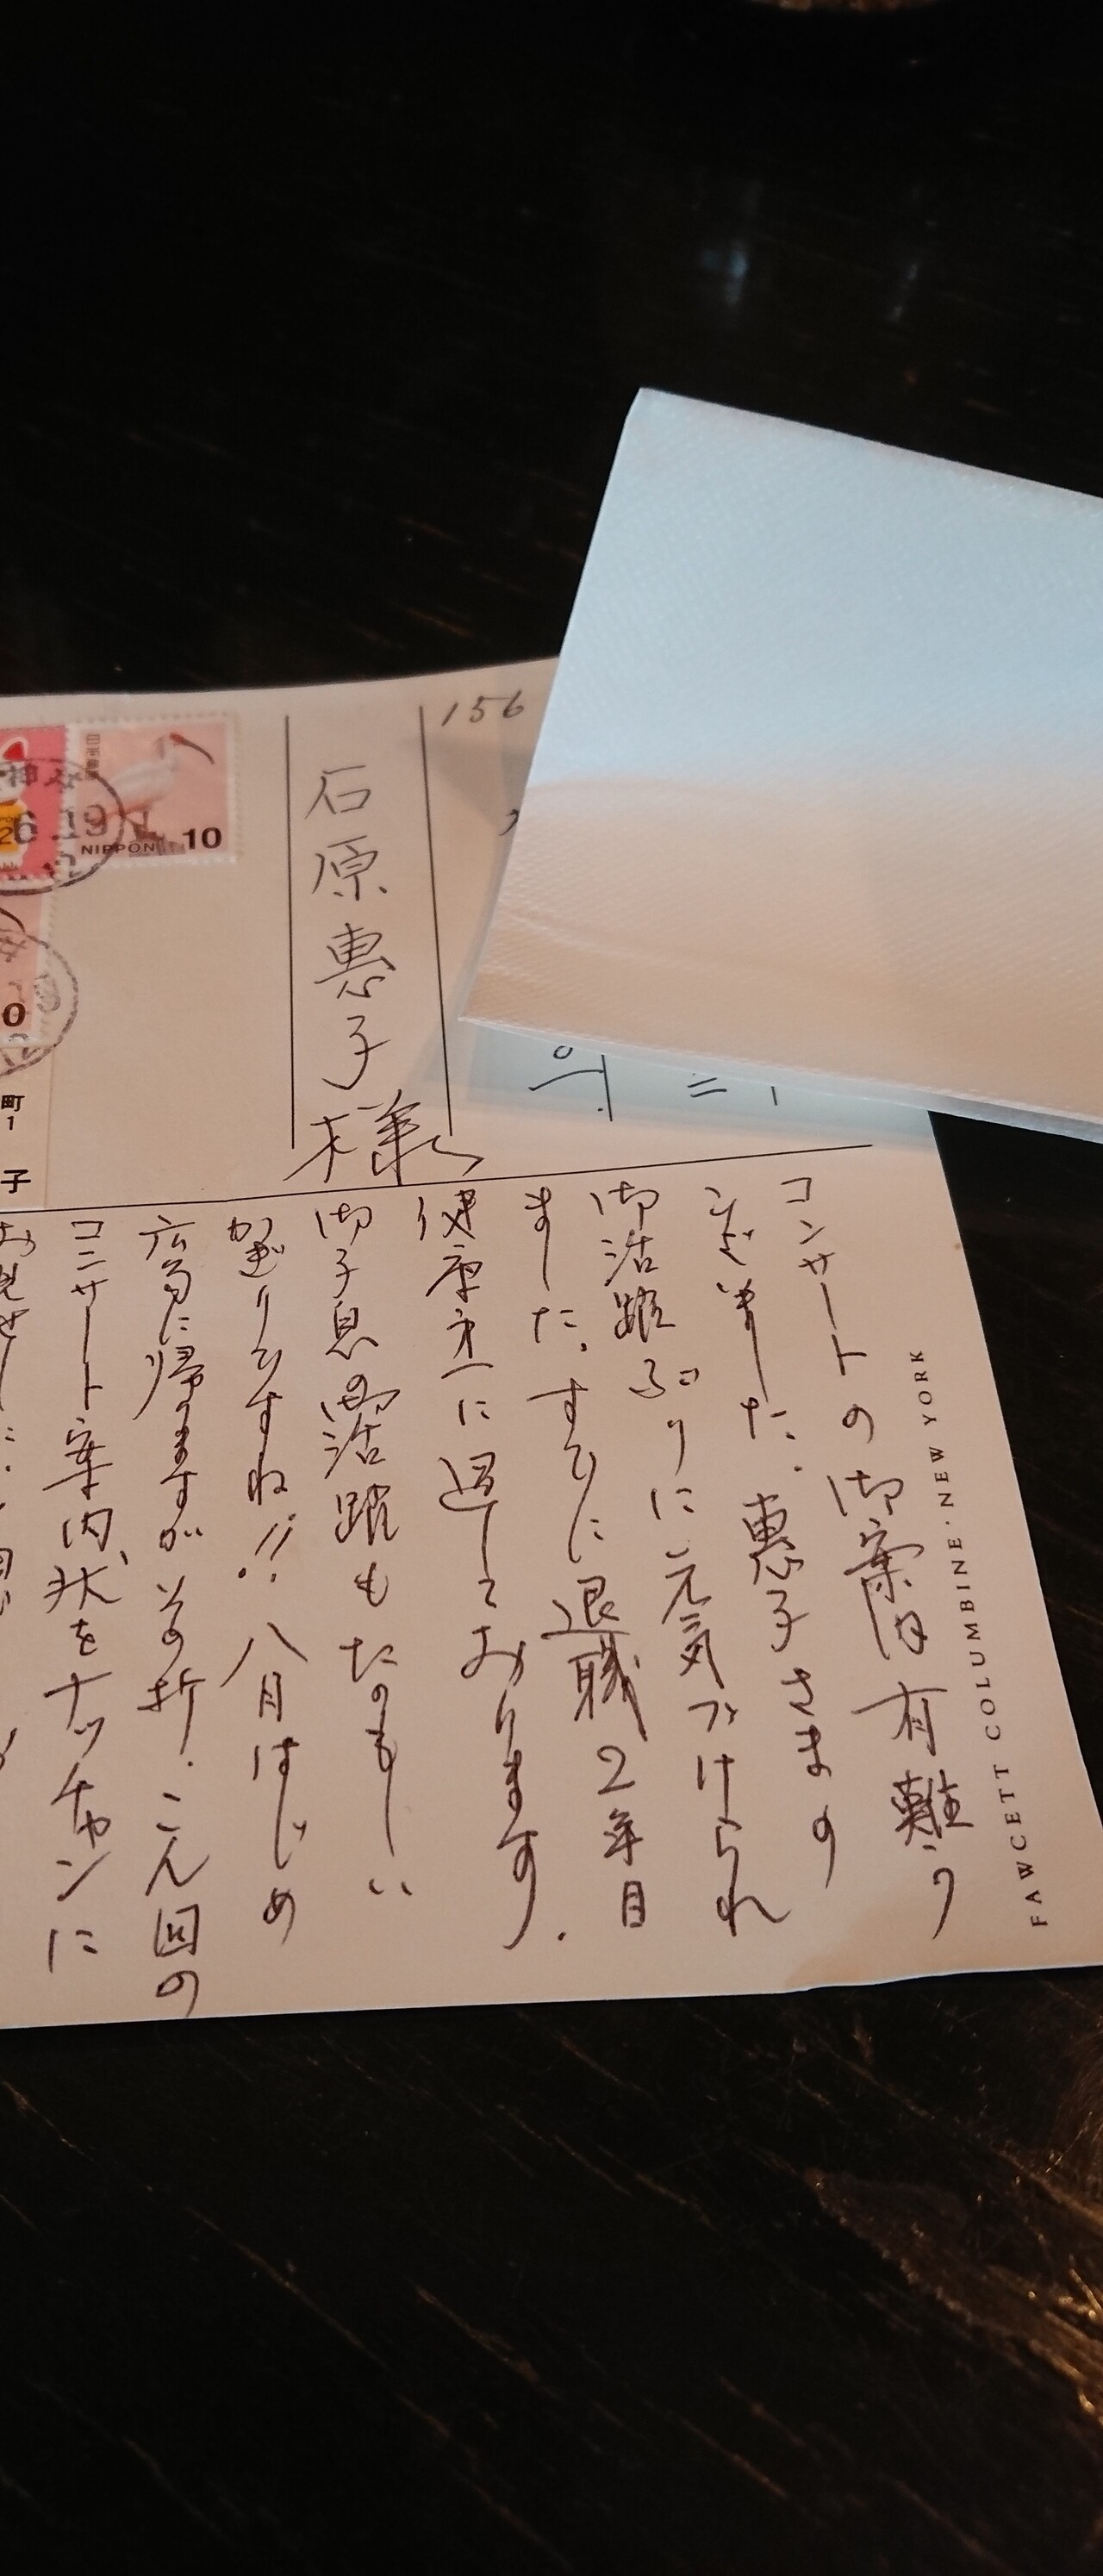 156
石原惠子様
日本郵便
NIPPON 10
6.19
0
町1
子
コンサートの御案内有難う
ございました。惠子さまの
御活躍ぶりに元気づけられ
ました。すでに退職2年目
健康第一に過しております.
御子息の御活躍もたのもしい
かぎりですね!! 八月はじめ
広島に帰りますがその折、こん回の
コンサート案内状をナッチャンに
お見せし
FAWCETT COLUMBINE · NEW YORK